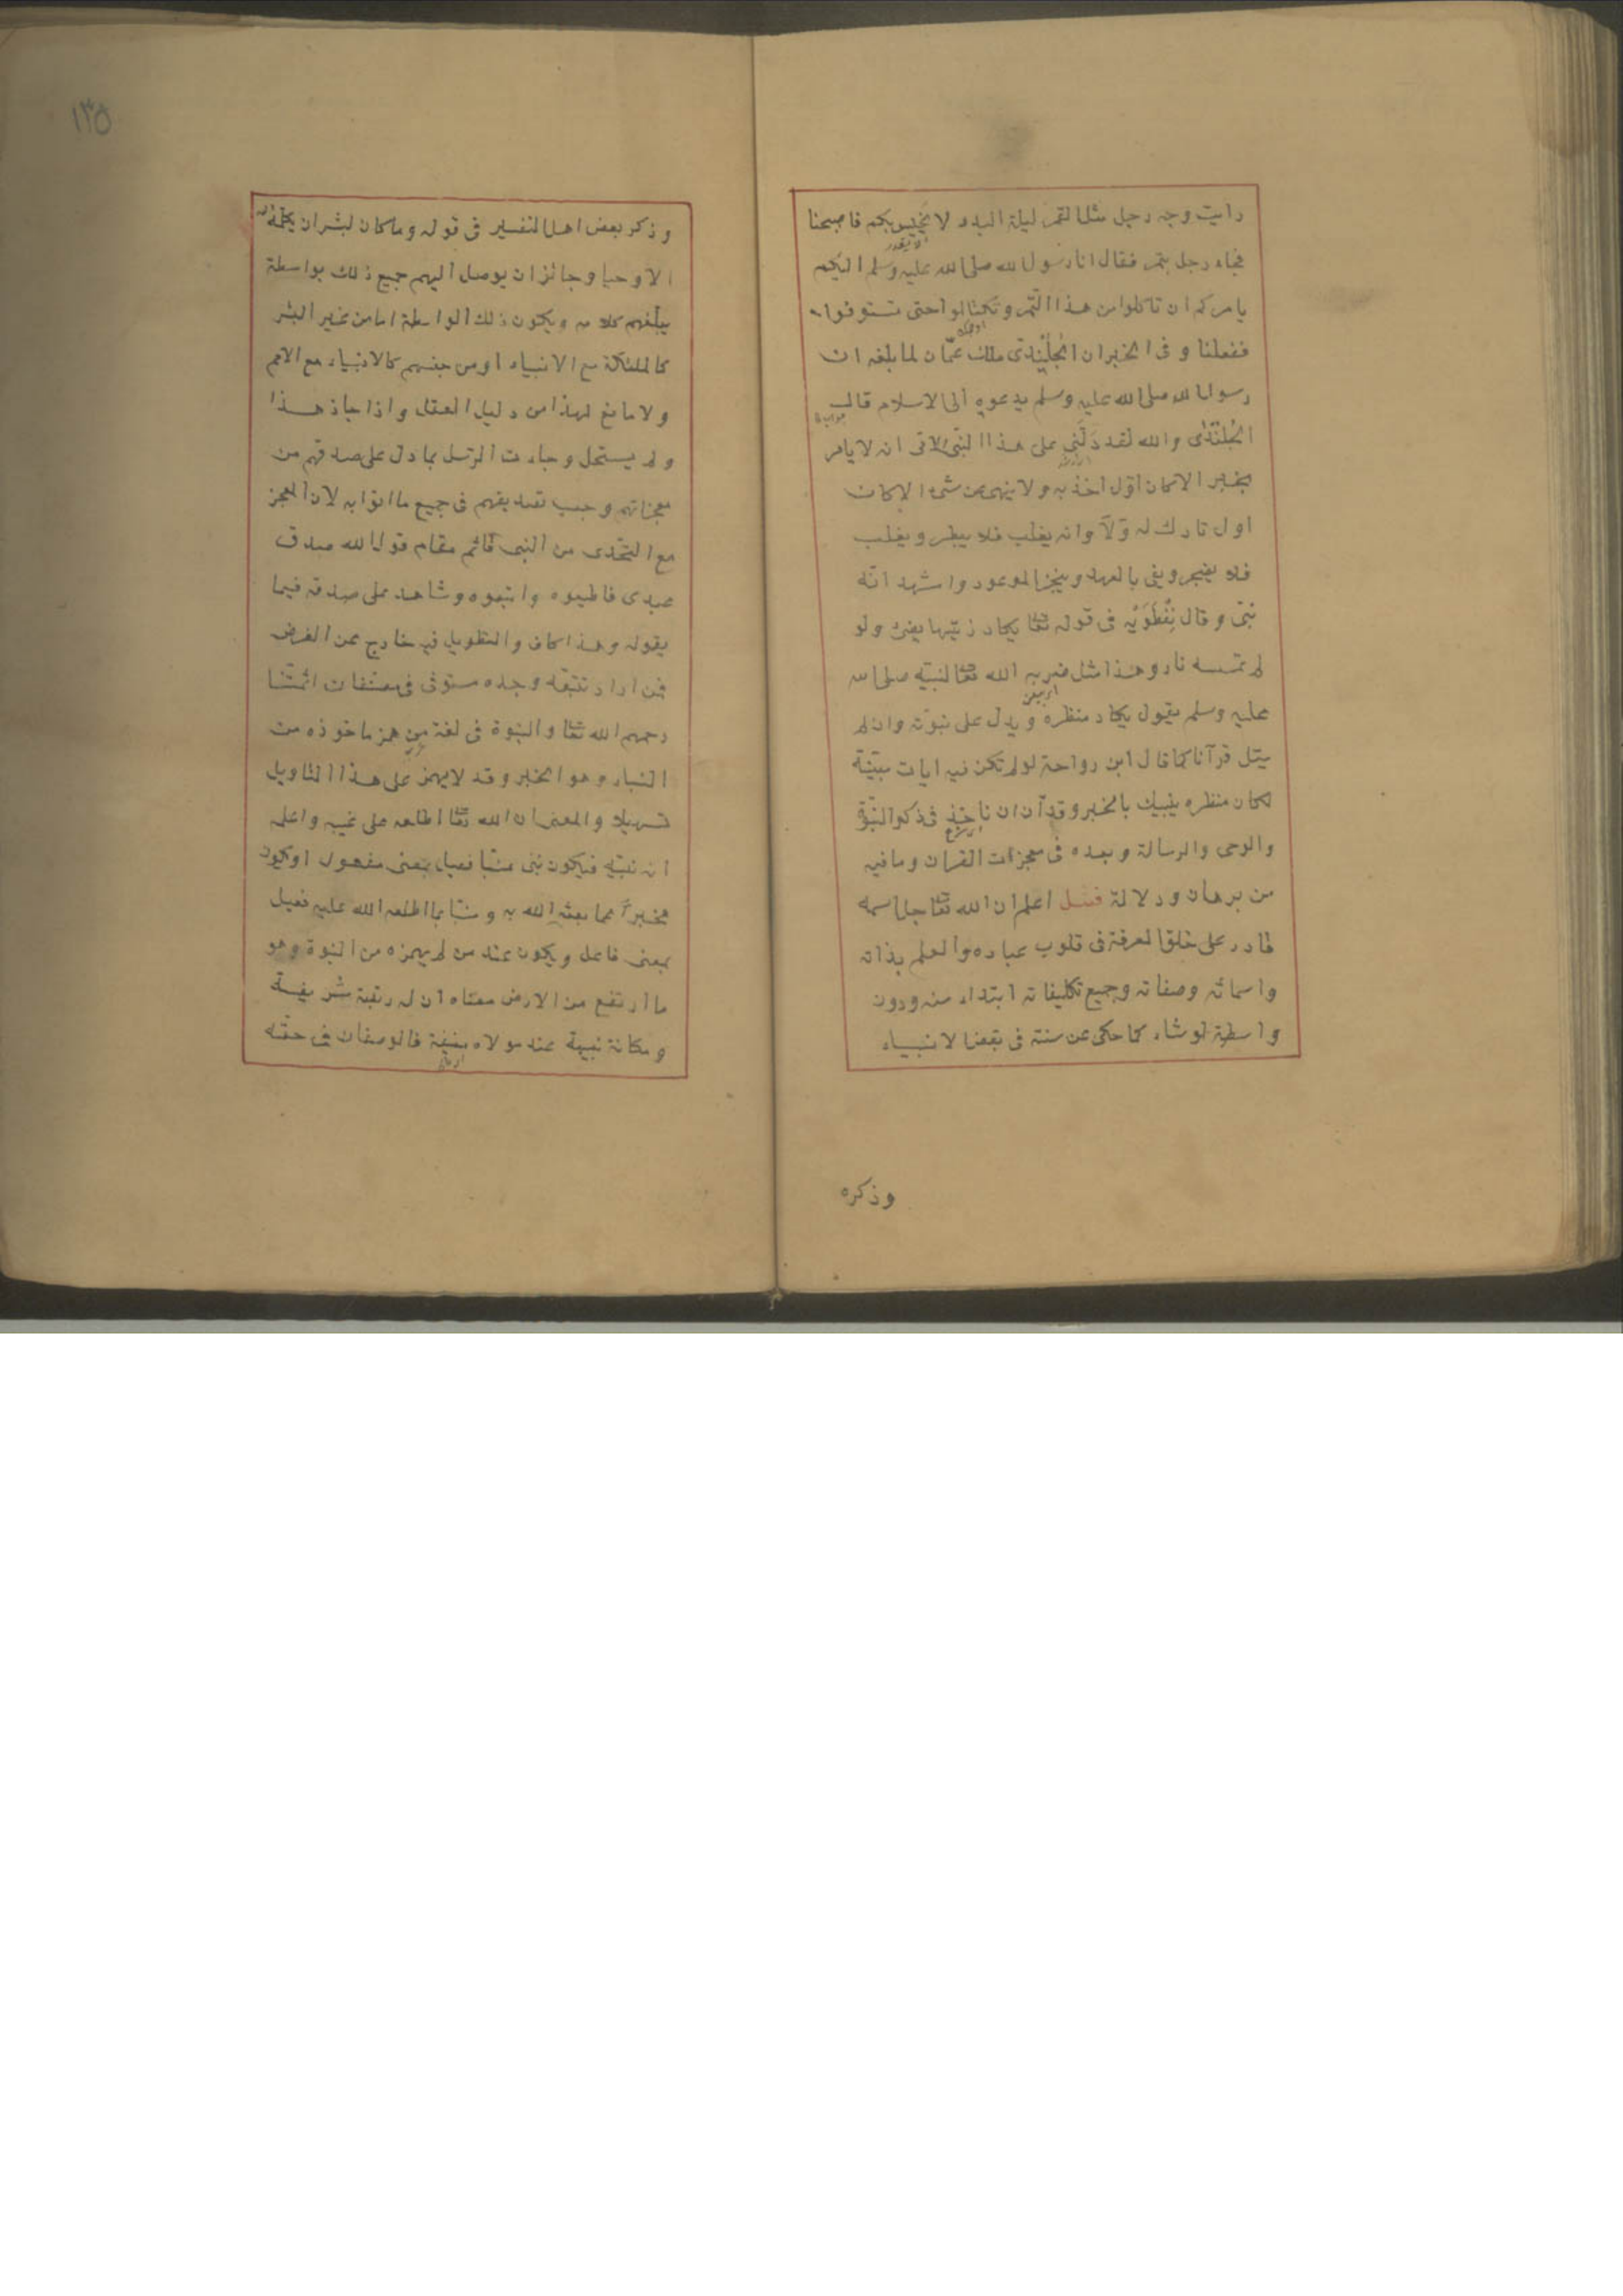 رايت وجه رجل مثل القمر ليلة البدر لا يخيس بكم فاصبحنا
فجاء رجل بتمر فقال انا رسول رسول الله صلى الله عليه وسلم اليكم
يامركم ان تاكلوا من هذا التمر وتكتالوا حتى تستوفوا
ففعلنا وفى الخبر ان الجلندى ملك عمّان لما بلغه ان
رسول الله صلى الله عليه وسلم يدعوه الى الاسلام قال
الجُلَنْدَى والله لقد دَلَّنِى على هذا النبى الامى انه لا يامر
بخير الا كان اوّل اخذ به ولا ينهى عن شئ الا كان
اول تارك له وانه يغلب فلا يبطر ويغلب
فلا يضجر ويفى بالعهد وينجز الموعود واشهد انّه
نبى وقال نِفْطَوَيْه فى قوله تعا يكاد زيتها يضئ ولو
لم تمسسه نار وهذا مثل ضربه الله تعا لنبيّه صلى الله
عليه وسلم يقول يكاد منظره يدل على نبوّته وان لم
يتل قرآنا كما قال ابن رواحة لو لم تكن فيه ايات مبيّنة
لكان منظره ينبيك بالخبر وقد آن ان ناخذ فى ذكر النبوّة
والوحى والرسالة وبعده فى معجزات القران وما فيه
من برهان ودلالة فصل اعلم ان الله تعا جل اسمه
قادر على خلق المعرفة فى قلوب عباده والعلم بذاته
واسمائه وصفاته وجميع تكليفاته ابتداء منه ودون
واسطة لو شاء كما حكى عن سنته فى بعض الانبياء
وذكره
١٣٥
وذكر بعض اهل التفسير فى قوله وما كان لبشر ان يكلمه الله
الا وحيا وجائز ان يوصل اليهم جميع ذلك بواسطة
يبلّغهم كلامه ويكون ذلك الواسطة اما من غير البشر
كالملئكة مع الانبياء او من جنسهم كالانبياء مع الامم
ولا مانع لهذا من دليل العقل واذا جاز هذا
ولم يستحل وجاءت الرسل بما دل على صدقهم من
معجزاتهم وجب تصديقهم فى جميع ما اتوا به لان المعجز
مع التحدى من النبى قائم مقام قول الله صدق
عبدى فاطيعوه واتبعوه وشاهد على صدقه فيما
يقوله وهذا كاف والتطويل فيه خارج عن الغرض
فمن اراد تتبّعه وجده مستوفى فى مصنفات ائمّتنا
رحمهم الله تعا والنبوة فى لغة من همز ماخوذه من
النباء وهو الخبر وقد لا يهمز على هذا التاويل
تسهيلا والمعنى ان الله تعا اطلعه على غيبه واعلمه
انه نبيّه فيكون نبى منبّا فعيل بمعنى مفعول او يكون
مخبراً عما بعثه الله به ومنبّا بما اطلعه الله عليه فعيل
بمعنى فاعل ويكون عند من لم يهمزه من النبوة وهو
ما ارتفع من الارض معناه ان له رتبة شريفة
ومكانة نبيهة عند مولاه منيفة فالوصفان فى حقّه